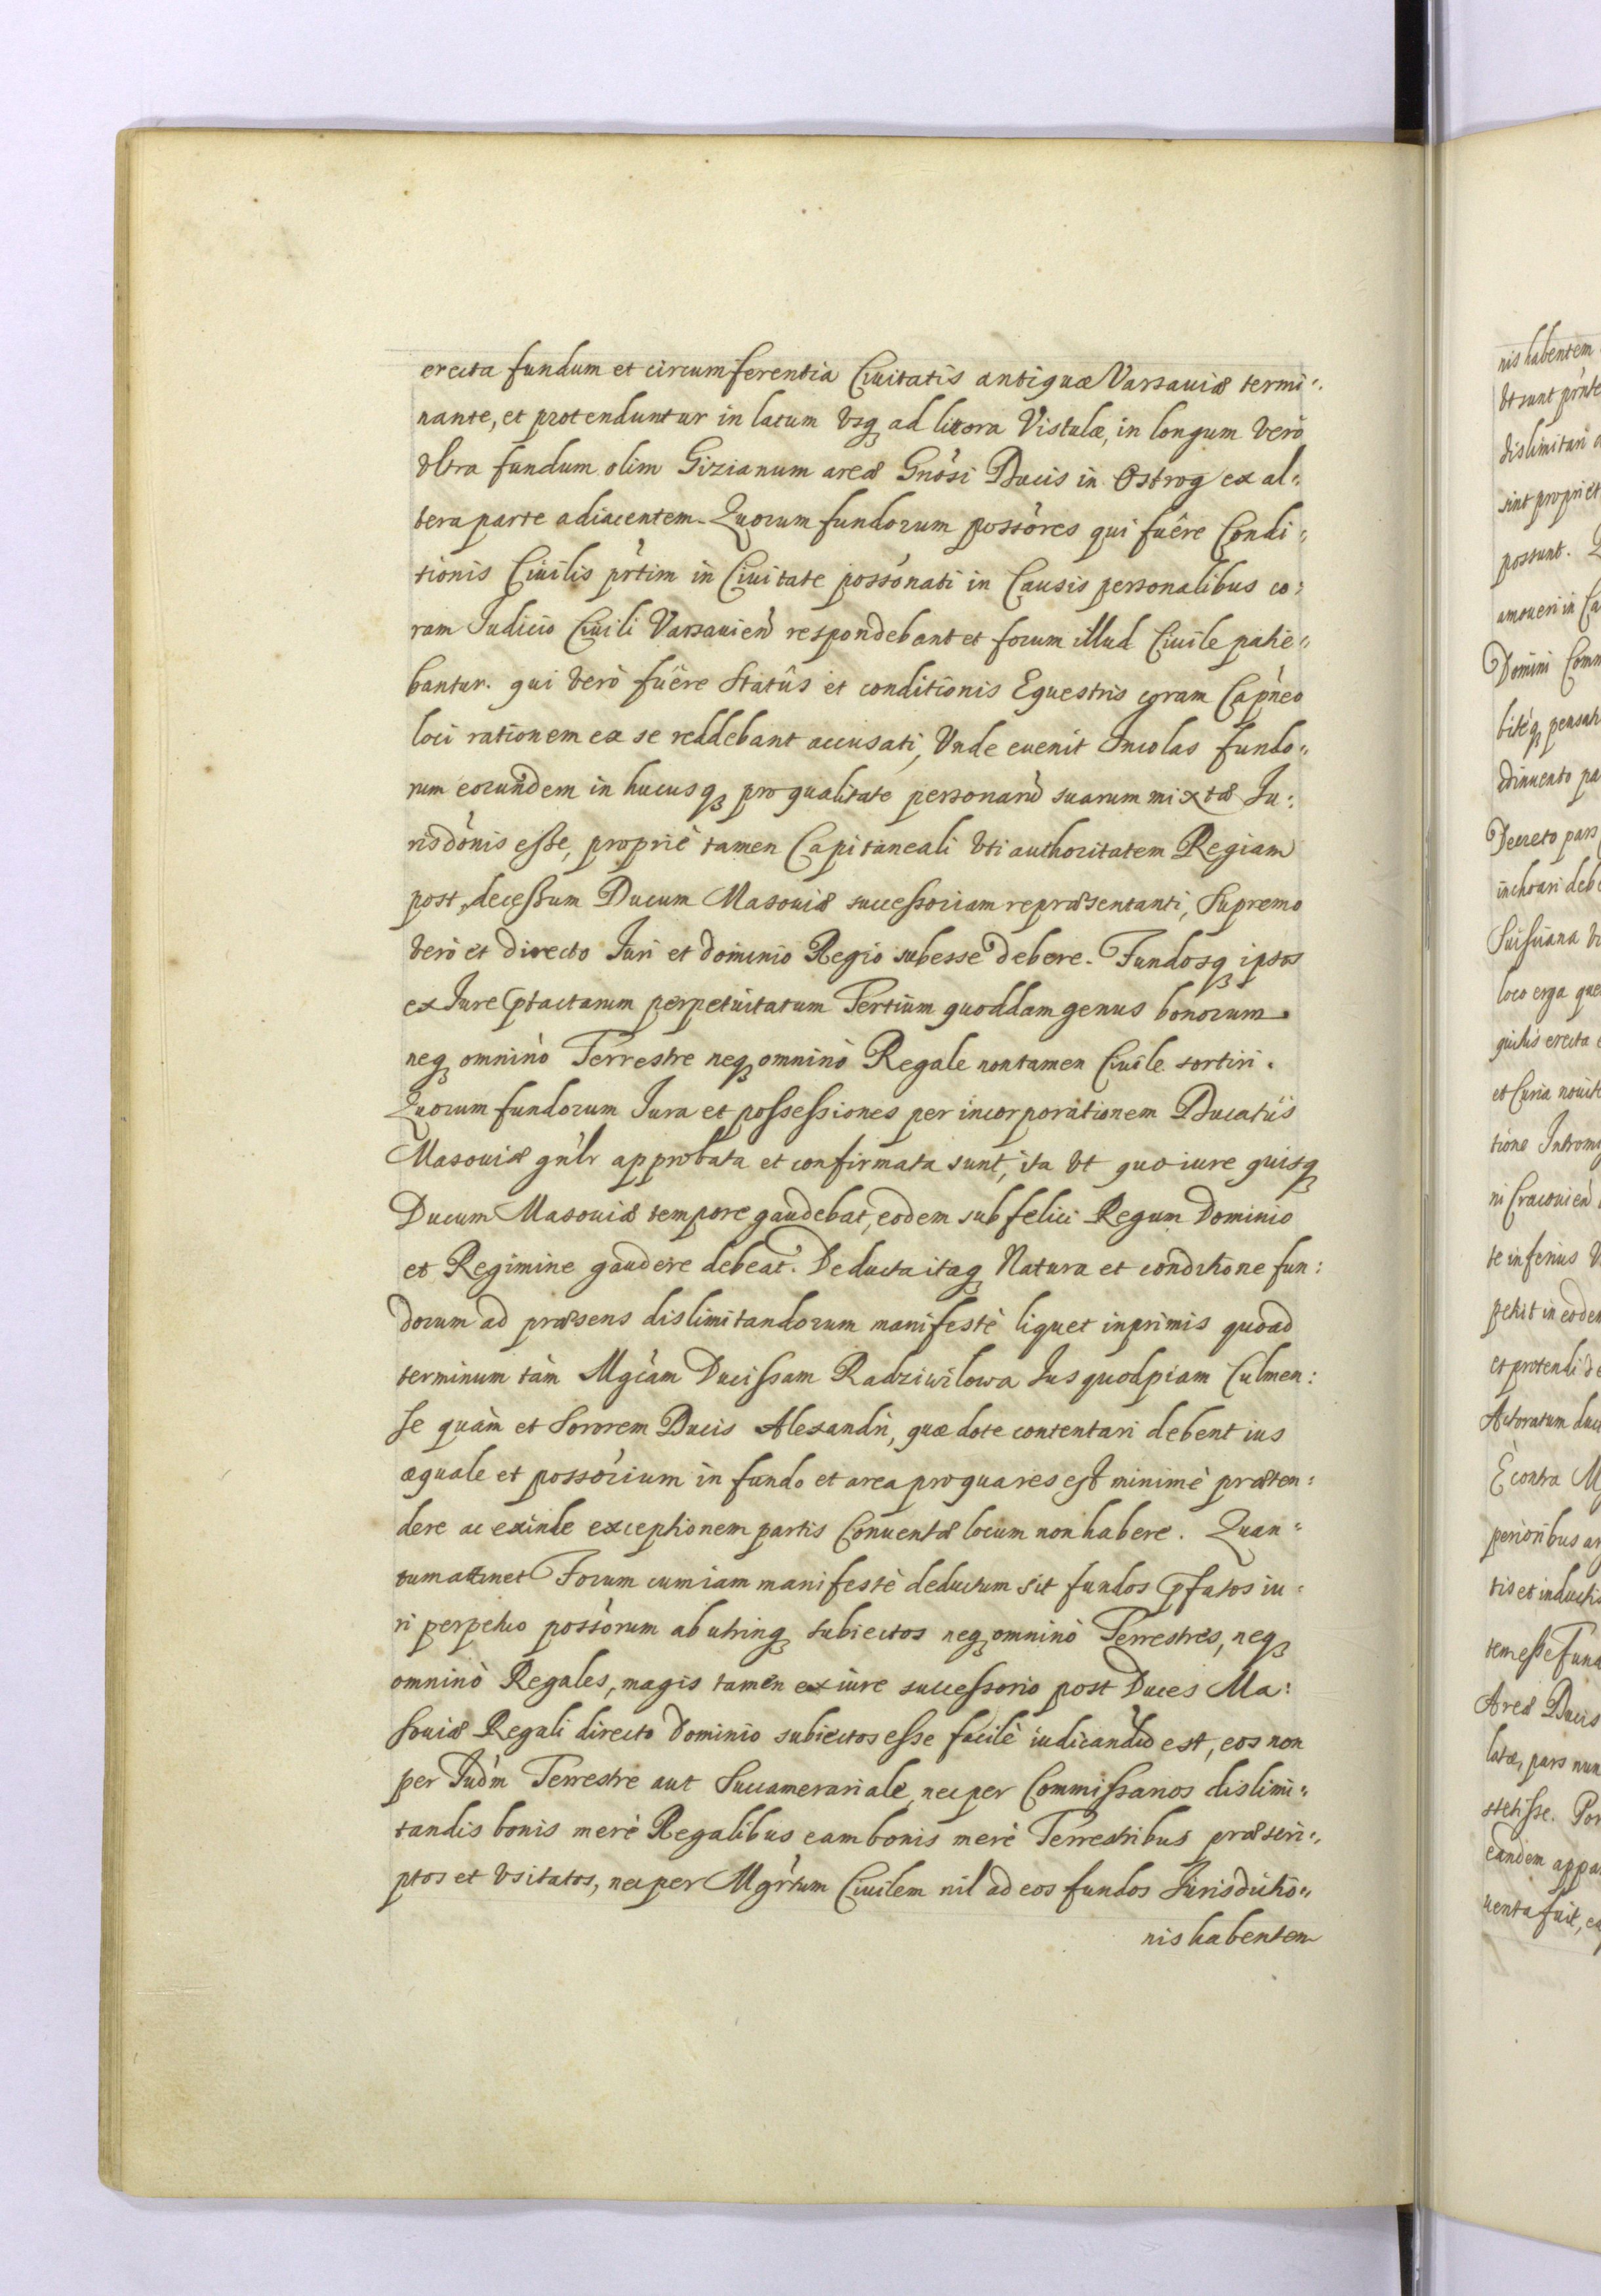 erecta fundum et circumferentia Ciuitatis antiquæ Varsauiæ termi:
nante, et protenduntur in latum vsq ad litora Vistulæ, in longum verò
vltra fundum olim Gizianum areæ Gnosi Ducis in Ostrog ex al:
tera parte adiacentem. Quorum fundorum possores qui fuêre Condi:
tionis Ciuilis prtim in Ciuitate possonati in Causis personalibus co:
ram Iudicio Ciuili Varsauien respondebant et forum illud Ciuile patie:
bantur. qui verò fuêre Statûs et conditionis Equestris coram Capneo
loci rationem ex se reddebant accusati, Vnde euenit Incolas fundo:
rum eorundem in hucusq pro qualitate personaru suarum mixtæ Iu:
risdonis esse, propriè tamen Capitaneali vti authoritatem Regiam
post decessum Ducum Masouiæ successoriam repræsentanti, Supremo
verò et directo Iuri et dominio Regio subesse debere. Fundosq ipsos
ex Iure ptactarum perpetuitatum Tertium quoddam genus bonorum
neq omninò Terrestre neq omninò Regale non tamen Ciuile sortiri.
Quorum fundorum Iura et possessiones per incorporationem Ducatûs
Masouiæ gnlr approbata et confirmata sunt, ita vt quo iure quisq
Ducum Masouiæ tempore gaudebat, eodem sub felici Regum Dominio
et Regimine gaudere debeat. Deducta itaq Natura et conditione fun:
dorum ad præsens dislimitandorum manifestè liquet inprimis quoad
terminum tàm Mgcam Ducissam Radziwilowa Ius quodpiam Culmen:
se quàm et Sororem Ducis Alexandri, quæ dote contentari debent ius
æquale et possorium in fundo et area pro qua res est minimè præten:
dere ac exinde exceptionem partis Conuentæ locum non habere. Quan:
tum attinet Forum cum iam manifestè deductum sit fundos pfatos iu:
ri perpetuo possorum ab utrinq subiectos neq omninò Terrestres, neq
omninò Regales, magis tamen ex iure successorio post Duces Ma:
souiæ Regali directo Dominio subiectos esse facilè iudicandu est, eos non
per Iudm Terrestre aut Succamerariale, nec per Commissarios dislimi:
tandis bonis merè Regalibus cum bonis merè Terrestribus præscri:
ptos et vsitatos, nec per Mgrtum Ciuilem nil ad eos fundos Iurisdictio:
nis habentem